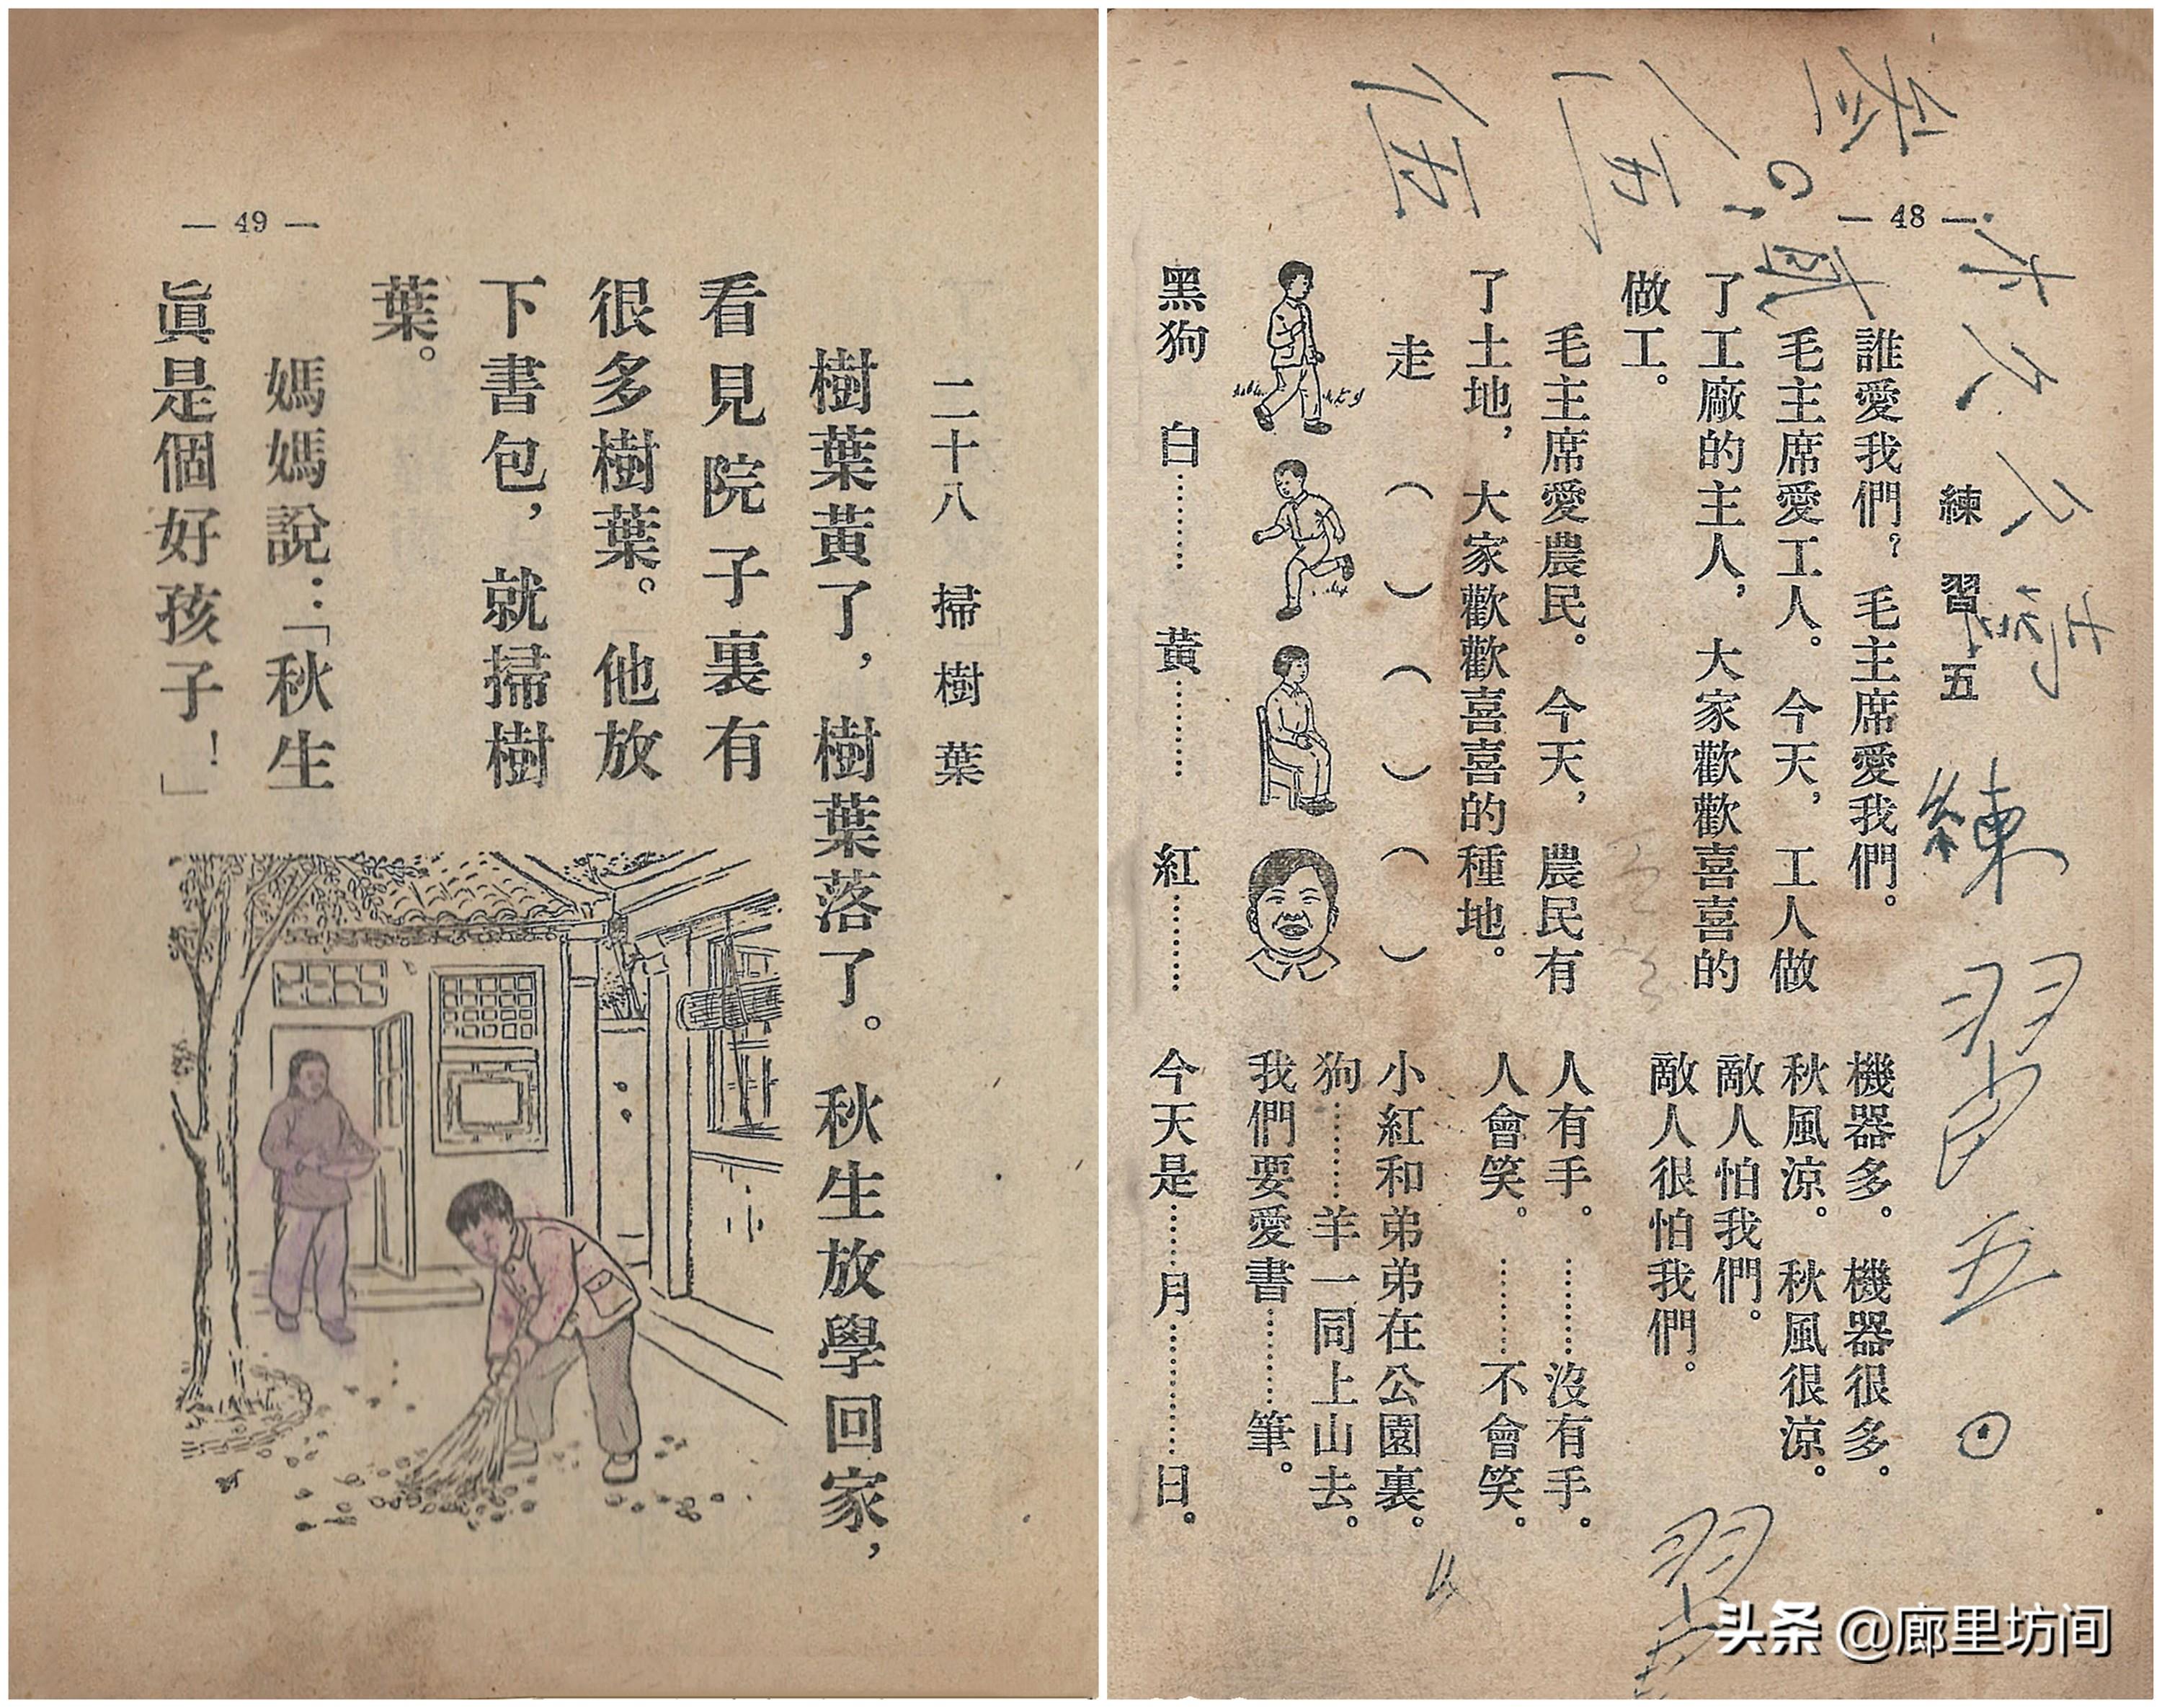 — 48 —
練習五
誰愛我們？　毛主席愛我們。
毛主席愛工人。　今天，工人做
了工廠的主人，　大家歡歡喜喜的
做工。
毛主席愛農民。　今天，農民有
了土地，　大家歡歡喜喜的種地。
走　（　）　（　）　（　）
黑狗　白………　黃………　紅………
機器多。　機器很多。
秋風涼。　秋風很涼。
敵人怕我們。
敵人很怕我們。
人有手。　………沒有手。
人會笑。　………不會笑。
小紅和弟弟在公園裏。
狗………羊一同上山去。
我們要愛書………筆。
今天是………月………日。
練習
五
習
伍
— 49 —
二十八　掃樹葉
樹葉黃了，樹葉落了。秋生放學回家，
看見院子裏有
很多樹葉。他放
下書包，就掃樹
葉。
媽媽說：「秋生
眞是個好孩子！」
头条 @廊里坊间